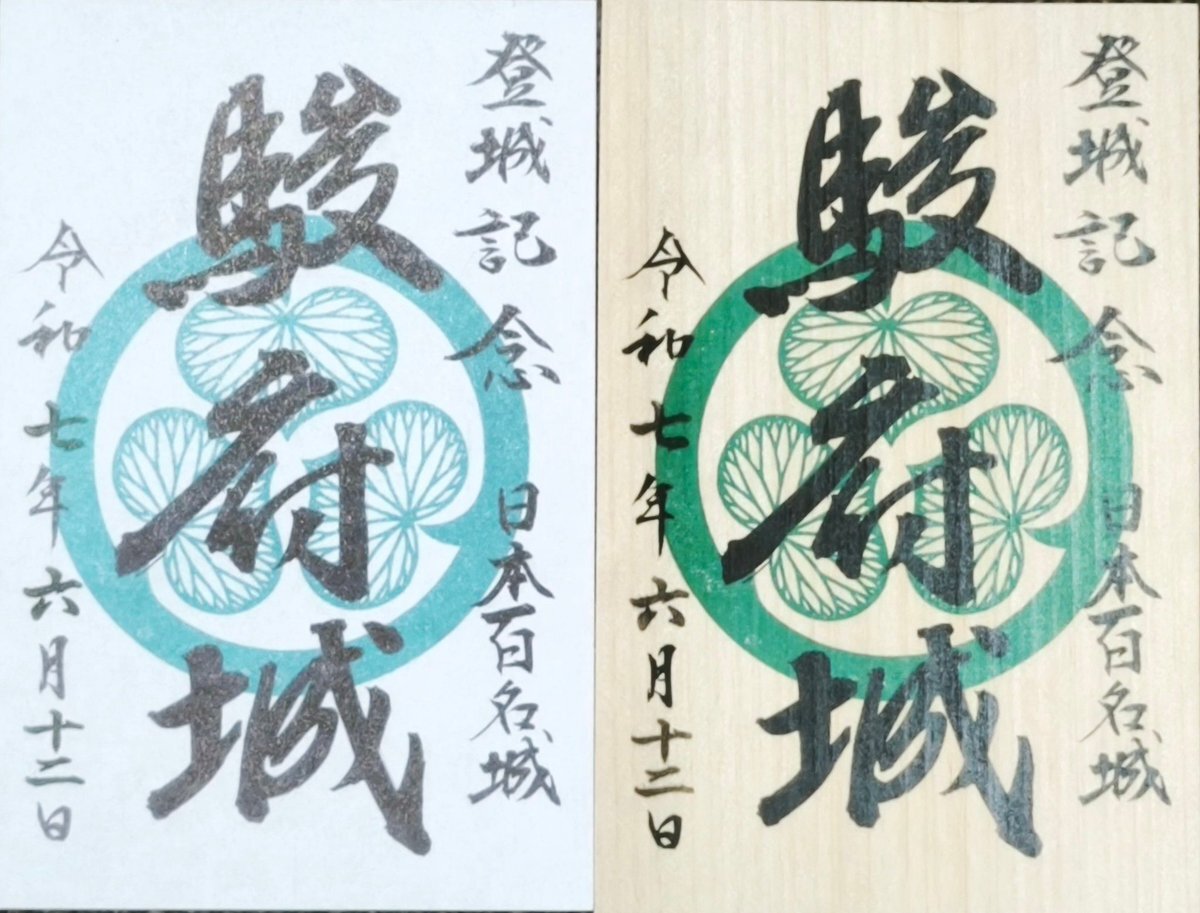 登城記念
日本百名城
駿府城
令和七年六月十二日
登城記念
日本百名城
駿府城
令和七年六月十二日